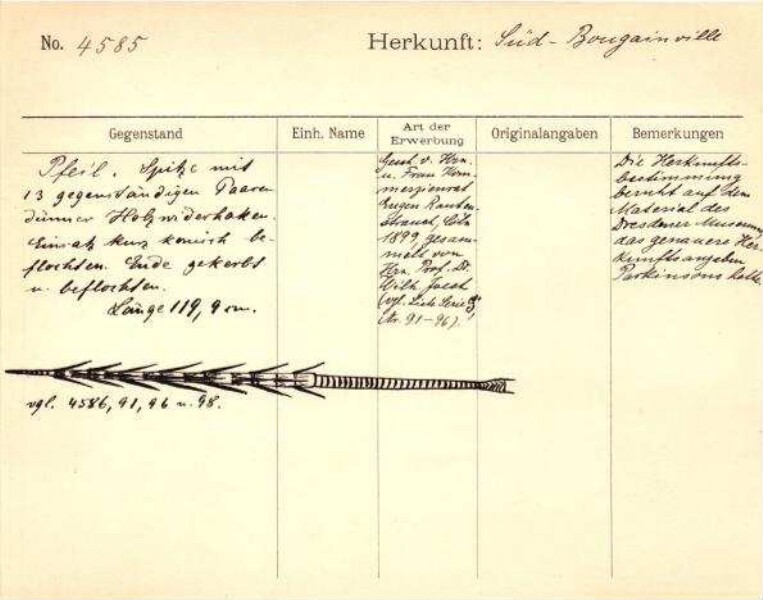 No. 4585
Herkunft: Süd-Bougainville
Gegenstand
Einh. Name
Art der
Erwerbung
Originalangaben
Bemerkungen
Pfeil. Spitze mit
13 gegenständigen Paaren
dünner Holzwiderhaken.
Einsatz kurz konisch be-
flochten. Ende gekerbt
u. beflochten.
Länge 119,9 cm.
Gesch. v. Hrn.
u. Frau Kom-
merzienrat
Eugen Rauten-
strauch, Cöln
1899, gesam-
melt von
Hrn. Prof. Dr.
Wilh. Joest
(vgl. Liste Serie
Nr. 91-96).
Die Herkunfts-
bestimmung
beruht auf dem
Material des
Dresdener Museums,
das genauere Her-
kunftsangaben
Parkinsons hatte.
vgl. 4586, 91, 96 u. 98.